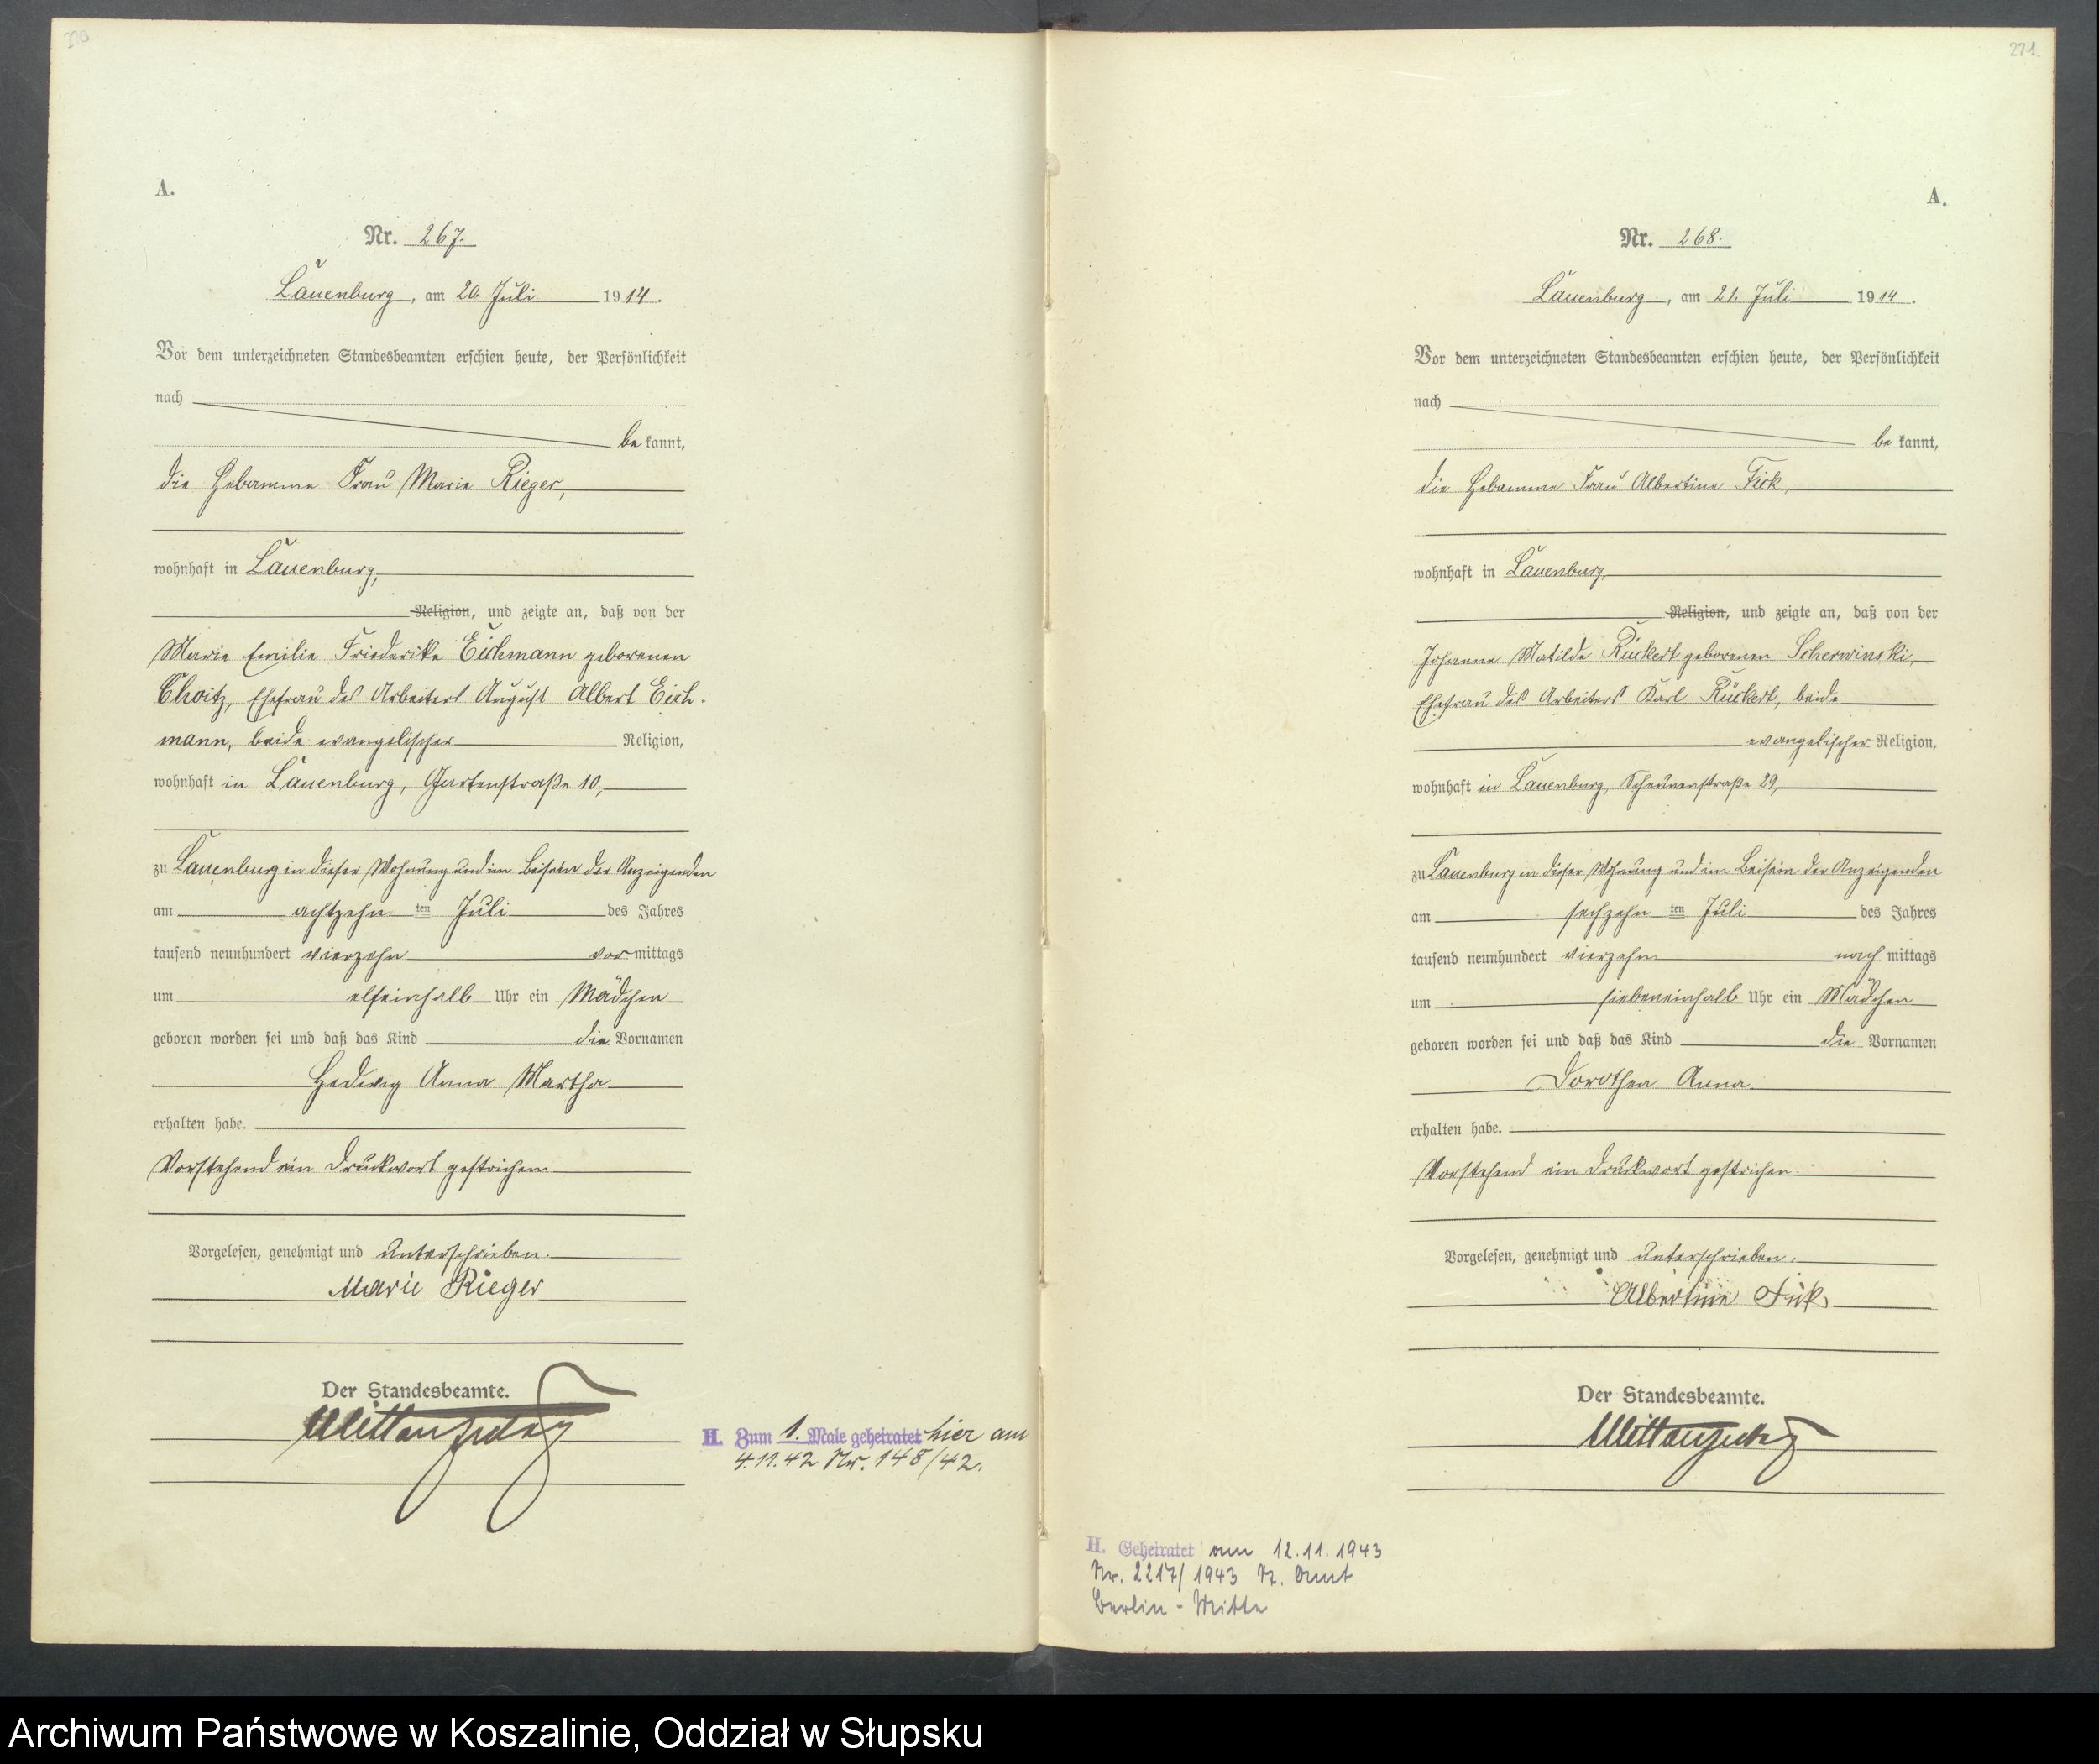 A.
Nr. 267.
Lauenburg, am 20. Juli 1914.
Vor dem unterzeichneten Standesbeamten erschien heute, der Persönlichkeit
nach
bekannt,
die Hebamme Frau Marie Rieger,
wohnhaft in Lauenburg,
Religion, und zeigte an, daß von der
Marie Emilie Friederike Eichmann geborenen
Choitz, Ehefrau des Arbeiters August Albert Eich-
mann, beide evangelischer Religion,
wohnhaft in Lauenburg, Gartenstraße 10,
zu Lauenburg in dieser Wohnung und im Beisein der Anzeigenden
am achtzehnten Juli des Jahres
tausend neunhundert vierzehn vormittags
um elfeinhalb Uhr ein Mädchen
geboren worden sei und daß das Kind die Vornamen
Hedwig Anna Martha
erhalten habe.
Vorstehend ein Druckwort gestrichen.
Vorgelesen, genehmigt und unterschrieben.
Marie Rieger
Der Standesbeamte.
H. Zum 1. Male geheiratet hier am
4.11.42 Nr. 148/42.
271.
A.
Nr. 268.
Lauenburg, am 21. Juli 1914.
Vor dem unterzeichneten Standesbeamten erschien heute, der Persönlichkeit
nach
bekannt,
die Hebamme Frau Albertine Fick,
wohnhaft in Lauenburg,
Religion, und zeigte an, daß von der
Johanna Matilde Rückert geborenen Scherwinski,
Ehefrau des Arbeiters Karl Rückert, beide
evangelischer Religion,
wohnhaft in Lauenburg, Scheunenstraße 29,
zu Lauenburg in dieser Wohnung und im Beisein der Anzeigenden
am sechzehnten Juli des Jahres
tausend neunhundert vierzehn nachmittags
um siebeneinhalb Uhr ein Mädchen
geboren worden sei und daß das Kind die Vornamen
Dorothea Anna
erhalten habe.
Vorstehend ein Druckwort gestrichen.
Vorgelesen, genehmigt und unterschrieben.
Albertine Fick,
Der Standesbeamte.
H. Geheiratet am 12.11.1943
Nr. 2217/1943 St. Amt
Berlin-Mitte
Archiwum Państwowe w Koszalinie, Oddział w Słupsku